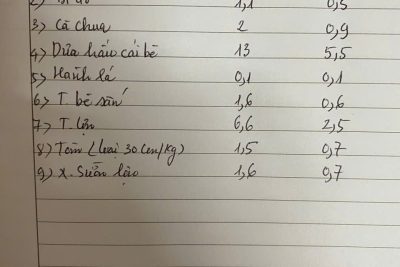 2) Bí đỏ 1,1 0,5
3) Cà chua 2 0,9
4) Dưa hấu cái bé 13 5,5
5) Hành lá 0,1 0,1
6) T. bê sấn 1,6 0,6
7) T. lợn 6,6 2,5
8) Tôm (loại 30 con/kg) 1,5 0,7
9) X. sườn lợn 1,6 0,7